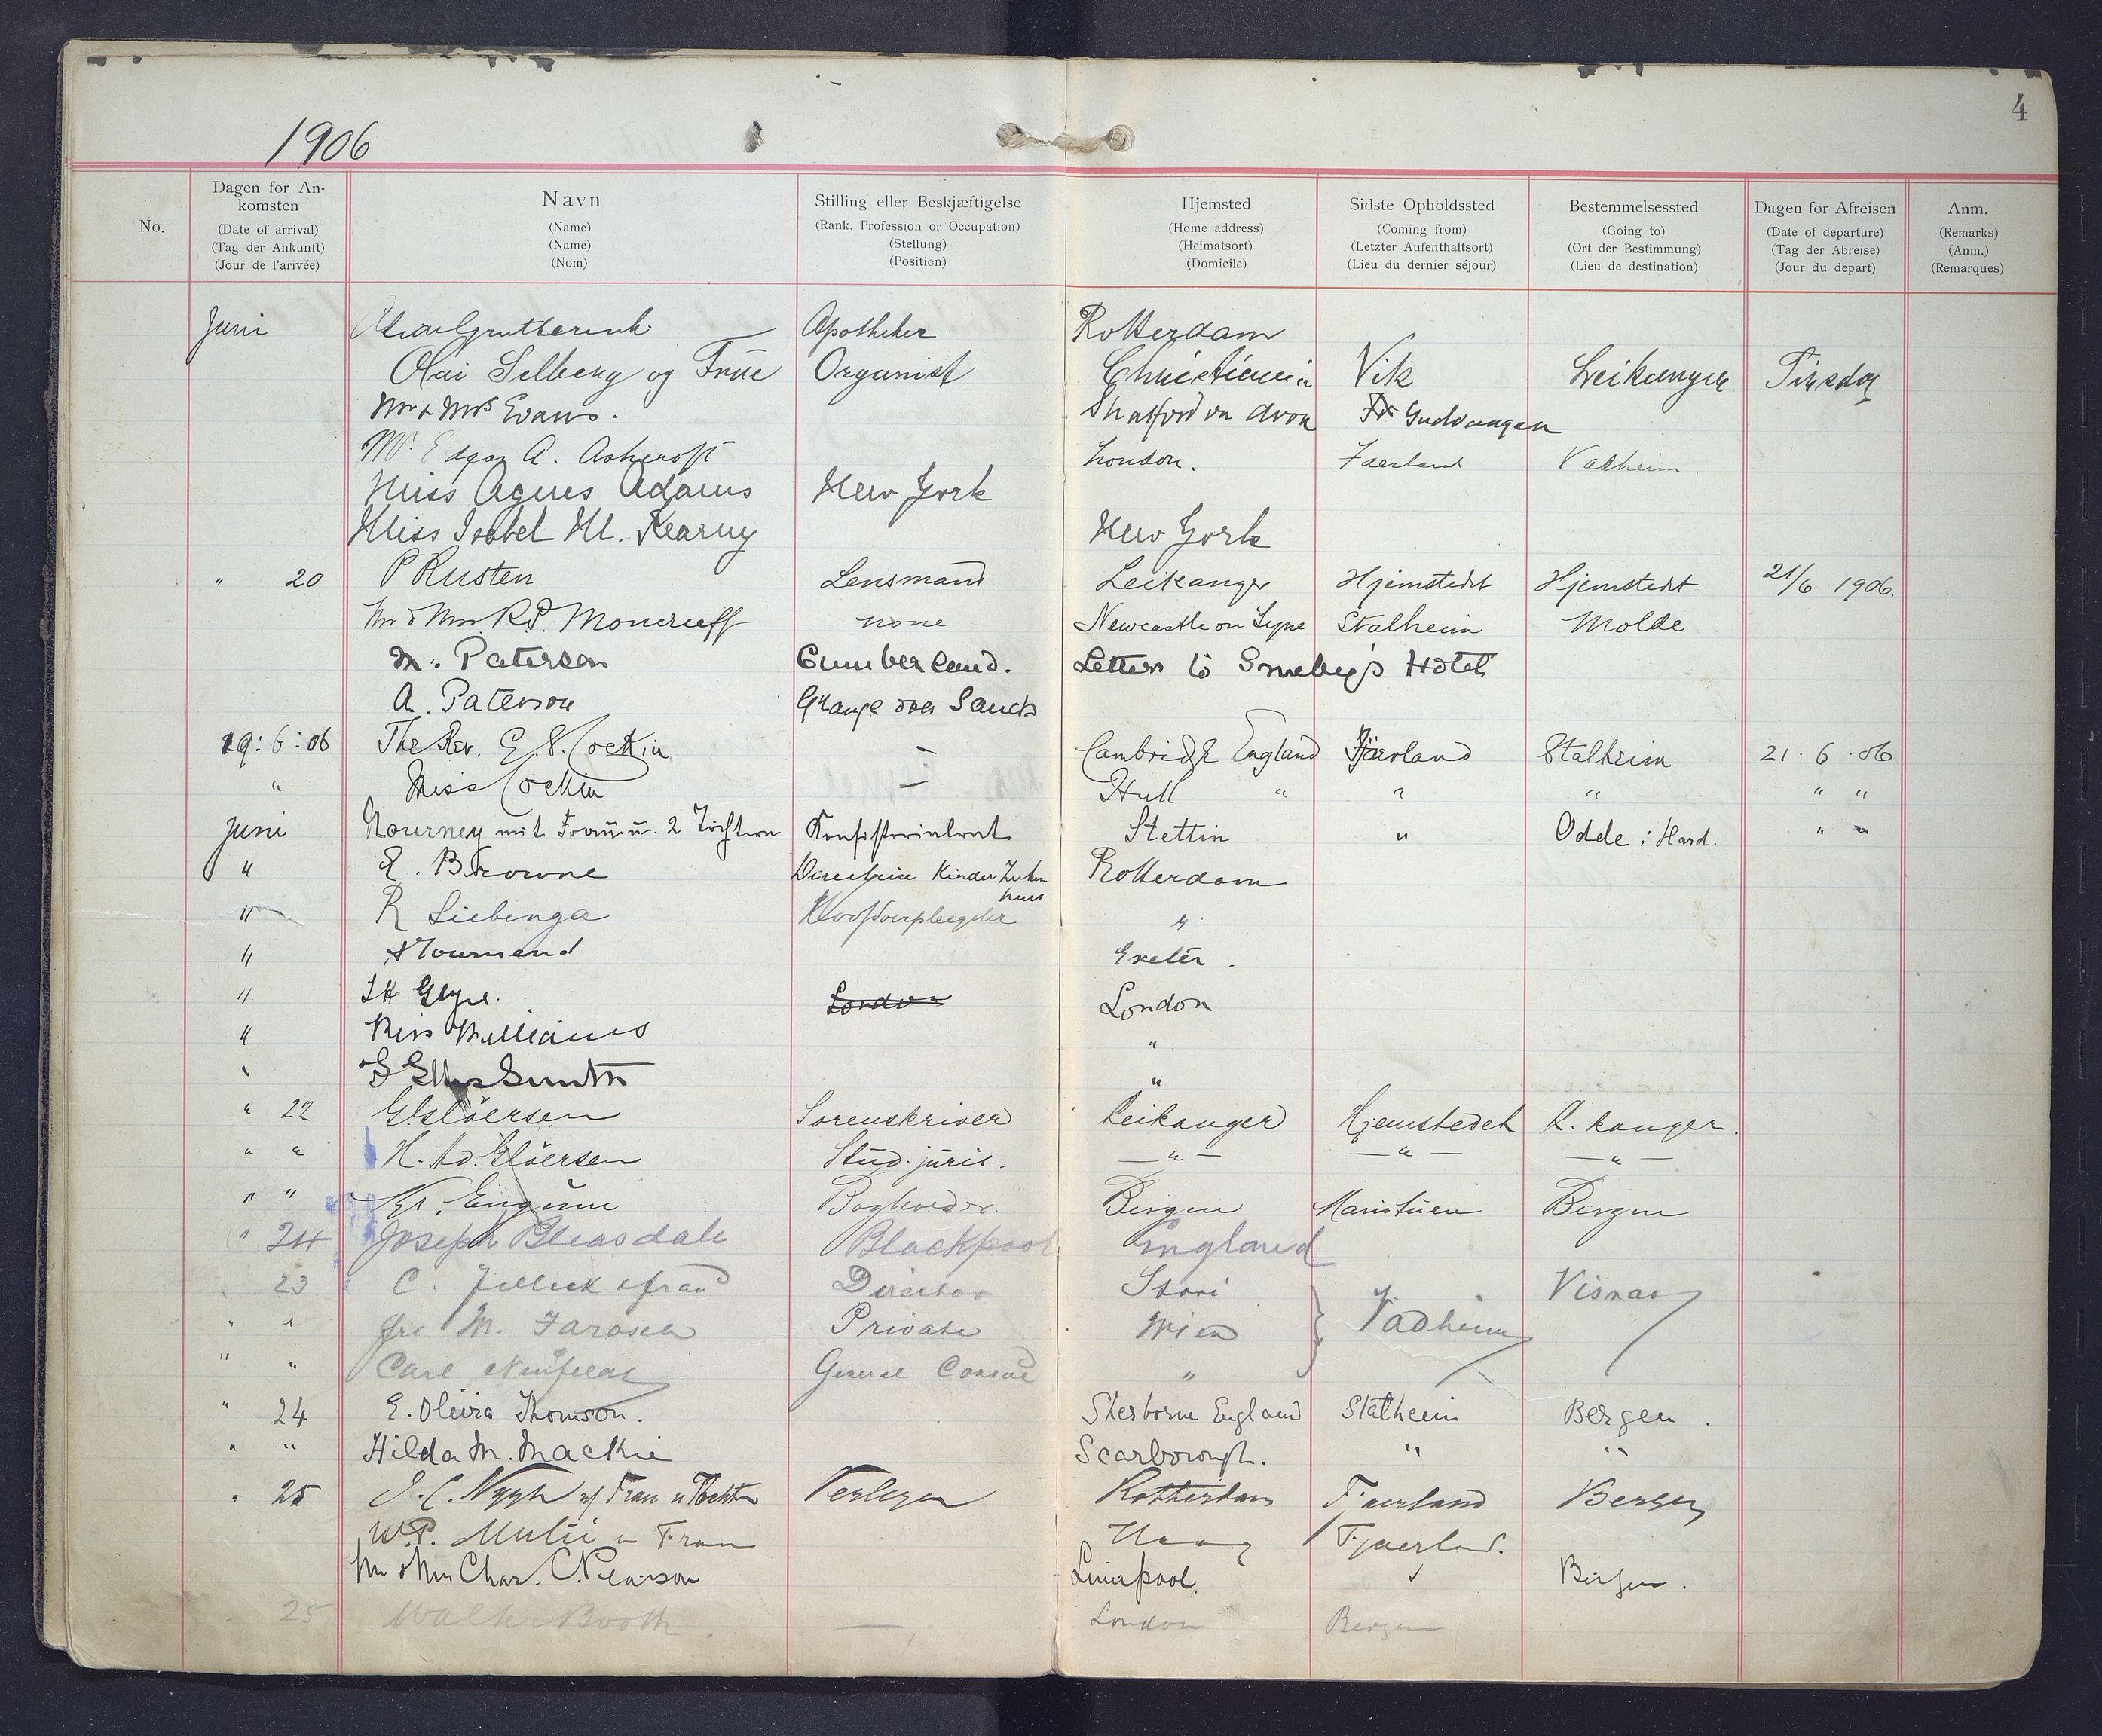 4
1906
No.
Dagen for An-
komsten
(Date of arrival)
(Tag der Ankunft)
(Jour de l'arivée)
Navn
(Name)
(Name)
(Nom)
Stilling eller Beskjæftigelse
(Rank, Profession or Occupation)
(Stellung)
(Position)
Hjemsted
(Home address)
(Heimatsort)
(Domicile)
Sidste Opholdssted
(Coming from)
(Letzter Aufenthaltsort)
(Lieu du dernier séjour)
Bestemmelsessted
(Going to)
(Ort der Bestimmung)
(Lieu de destination)
Dagen for Afreisen
(Date of departure)
(Tag der Abreise)
(Jour du depart)
Anm.
(Remarks)
(Anm.)
(Remarques)
Juni Apotheker Rotterdam
Olai Selberg og Frue Organist Christiania Vik Leikanger Tirsdag
Mr & Mrs Evans. Stratford on Avon Gudvangen
Mr. Edgar A. Ashcroft London. Fjaerland Vadheim
Miss Agnes Adams New York
Miss Isabel M. Kearny New York
" 20 P Rusten Lensmand Leikanger Hjemstedet Hjemstedet 21/6 1906.
Mr & Mrs R. P. Moncrieff none Newcastle on Tyne Stalheim Molde
M. Paterson Cumberland. Letters to Smeby's Hotel
A. Paterson Grange over Sands
19:6:06 The Rev. Cockin — Cambridge England Fjaerland Stalheim 21.6.06
" Miss Cockin — Hull " " " " "
Juni Nourney mit Frau u. 2 Töchtern Konsistorialrat Stettin " Odde i Hard. " "
" E. Browne Directrice Kinder Zieken
huis Rotterdam
" R Siebenga Hoofdverpleegster "
" Townsend Exeter.
" London London
" Miss Williams "
" "
" 22 Glöersen Sorenskriver Leikanger Hjemstedet L. kanger.
" " H. Ad. Glöersen Stud. juris. — " — — " — — " —
" " Kr. Engum Bogholder Bergen Maristuen Bergen
" 24 Joseph Bleasdale Blackpool England
" 23. C. & frau Director Visnas
" " M. Private Wien Vadheim
" " Carl General Consul "
" 24 E. Olivia Thomson. Sherborne England Stalheim Bergen.
" " Hilda M. Mackie Scarborough. " "
" 25 Nygh Frau u Tochter Verleger Rotterdam Fjaerland Bergen
W.P. u Frau Haag Fjaerland.
Mr & Mrs Chas. C. Pearson Liverpool. Bergen.
25 Walter Booth. — London Bergen